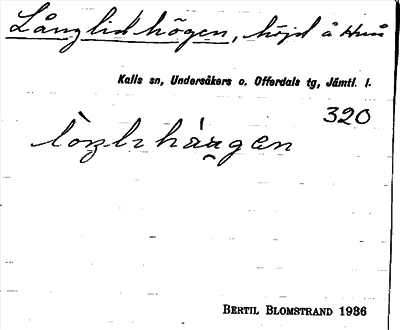 Långlidhögen, höjd å Huså
Kalls sn, Undersåkers o. Offerdals tg, Jämtl. l.
320
BERTIL BLOMSTRAND 1986